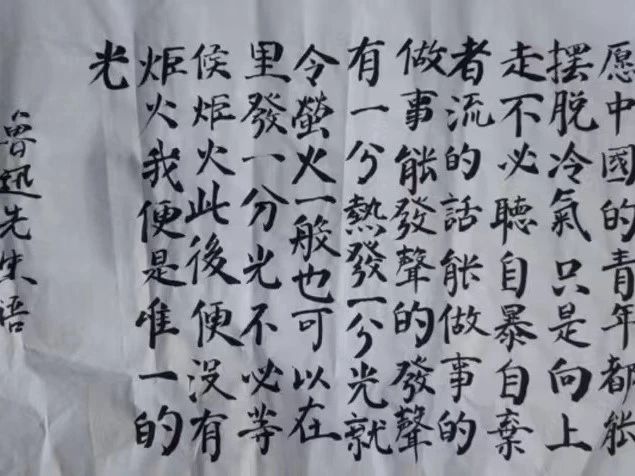 愿中國的青年都能
摆脱冷氣只是向上
走不必聽自暴自棄
者流的話能做事的
做事能發聲的發聲
有一分熱發一分光就
令螢火一般也可以在
里發一分光不必等
候炬火此後便没有
炬火我便是唯一的
光
魯迅先生语